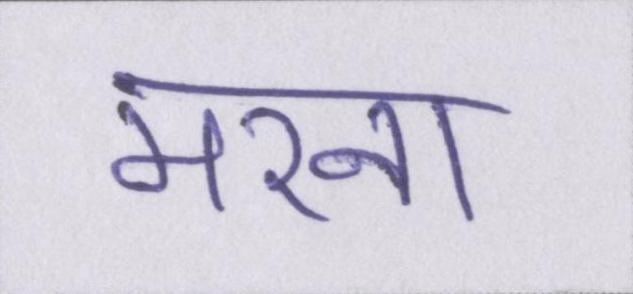 मरना